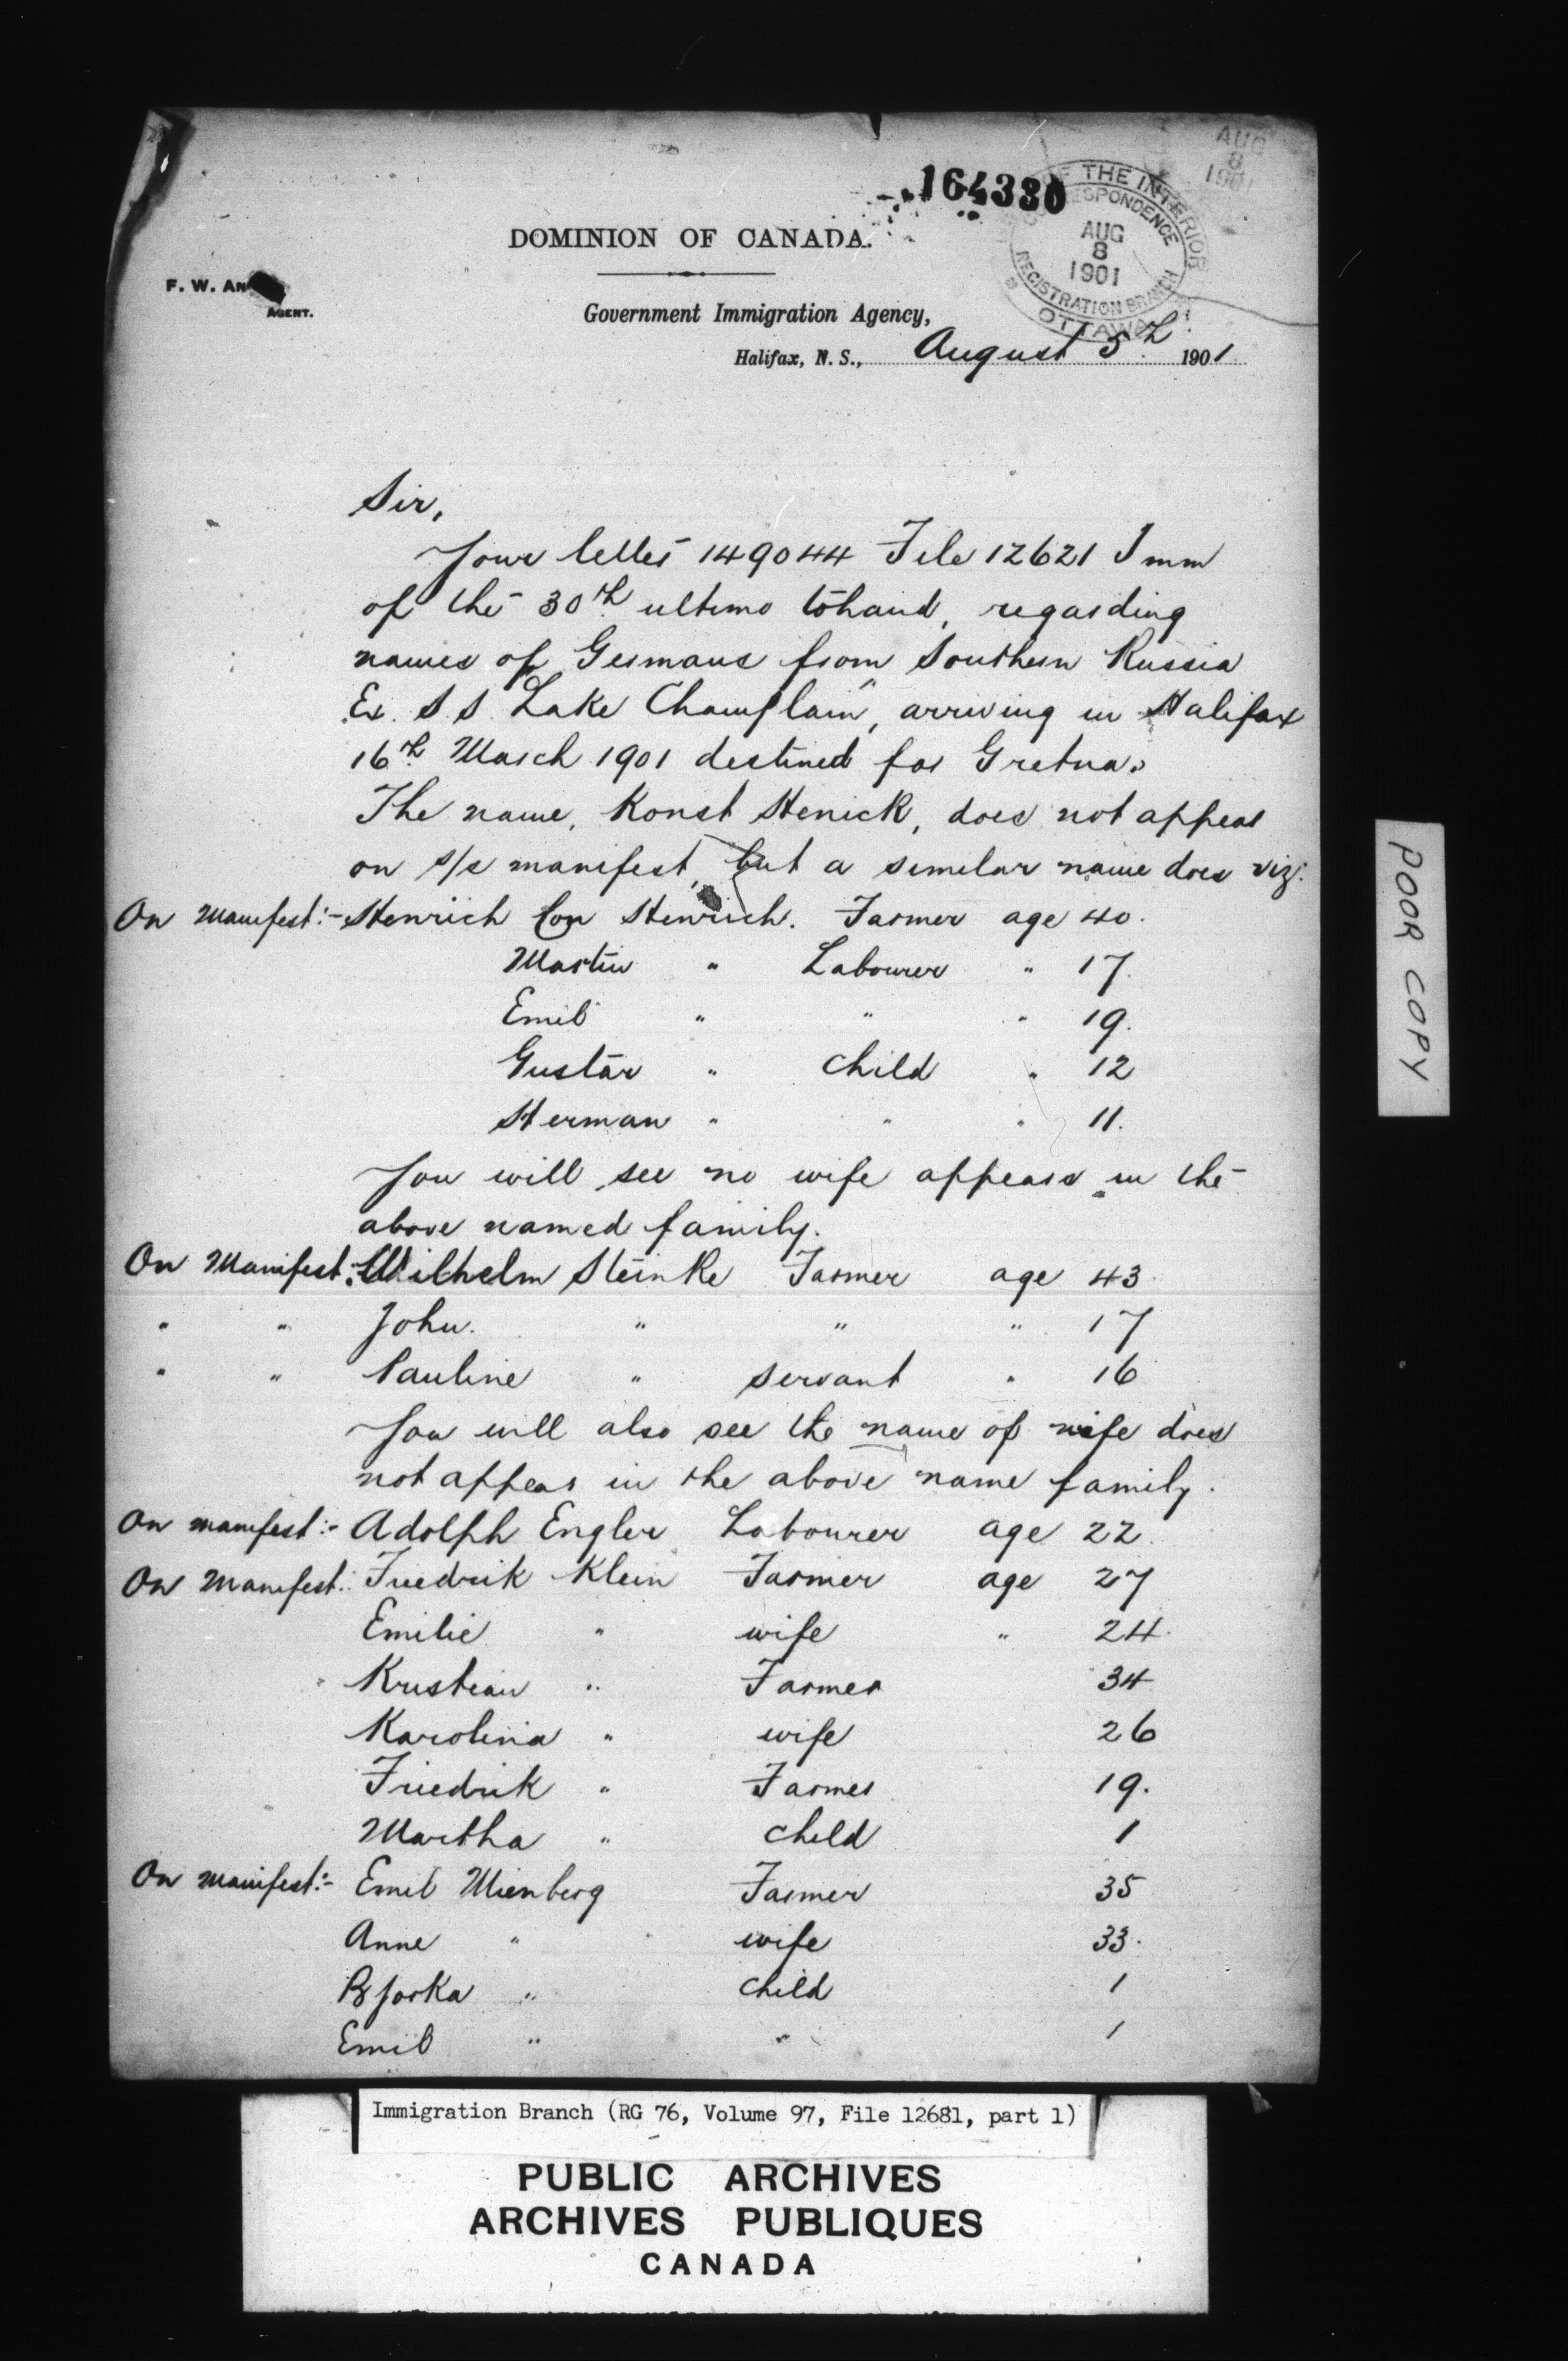 AUG
8
1901
164330
THE INTERIOR
AUG
8
1901
REGISTRATION BRANCH
OTTAWA
DOMINION OF CANADA.
F. W. AN
AGENT.
Government Immigration Agency,
Halifax, N. S., August 5th 1901
Sir,
Your letter 149044 File 12621 Imm
of the 30th ultimo to hand, regarding
names of Germans from Southern Russia
Ex. S S "Lake Champlain", arriving in Halifax
16th March 1901 destined for Gretna.
The name, Konst Henick, does not appear
on s/s manifest, but a similar name does viz:
On Manifest:- Henrich Con Henrich. Farmer age 40.
Martin " Labourer " 17.
Emil " " " 19.
Gustav " child " 12
Herman " " " 11.
You will see no wife appears in the
above named family.
On Manifest:- Wilhelm Steinke Farmer age 43
" " John. " " " 17
" " Pauline " servant " 16
You will also see the name of wife does
not appear in the above name family.
On manifest:- Adolph Engler Labourer age 22.
On Manifest:- Friedrik Klein Farmer age 27
Emilie " wife " 24.
Kristian " Farmer 34
Karolina " wife 26
Friedrik " Farmer 19.
Martha " child 1
On manifest:- Emil Farmer 35
Anne " wife 33.
" child 1
Emil " " 1
POOR COPY
Immigration Branch (RG 76, Volume 97, File 12681, part 1)
PUBLIC ARCHIVES
ARCHIVES PUBLIQUES
CANADA